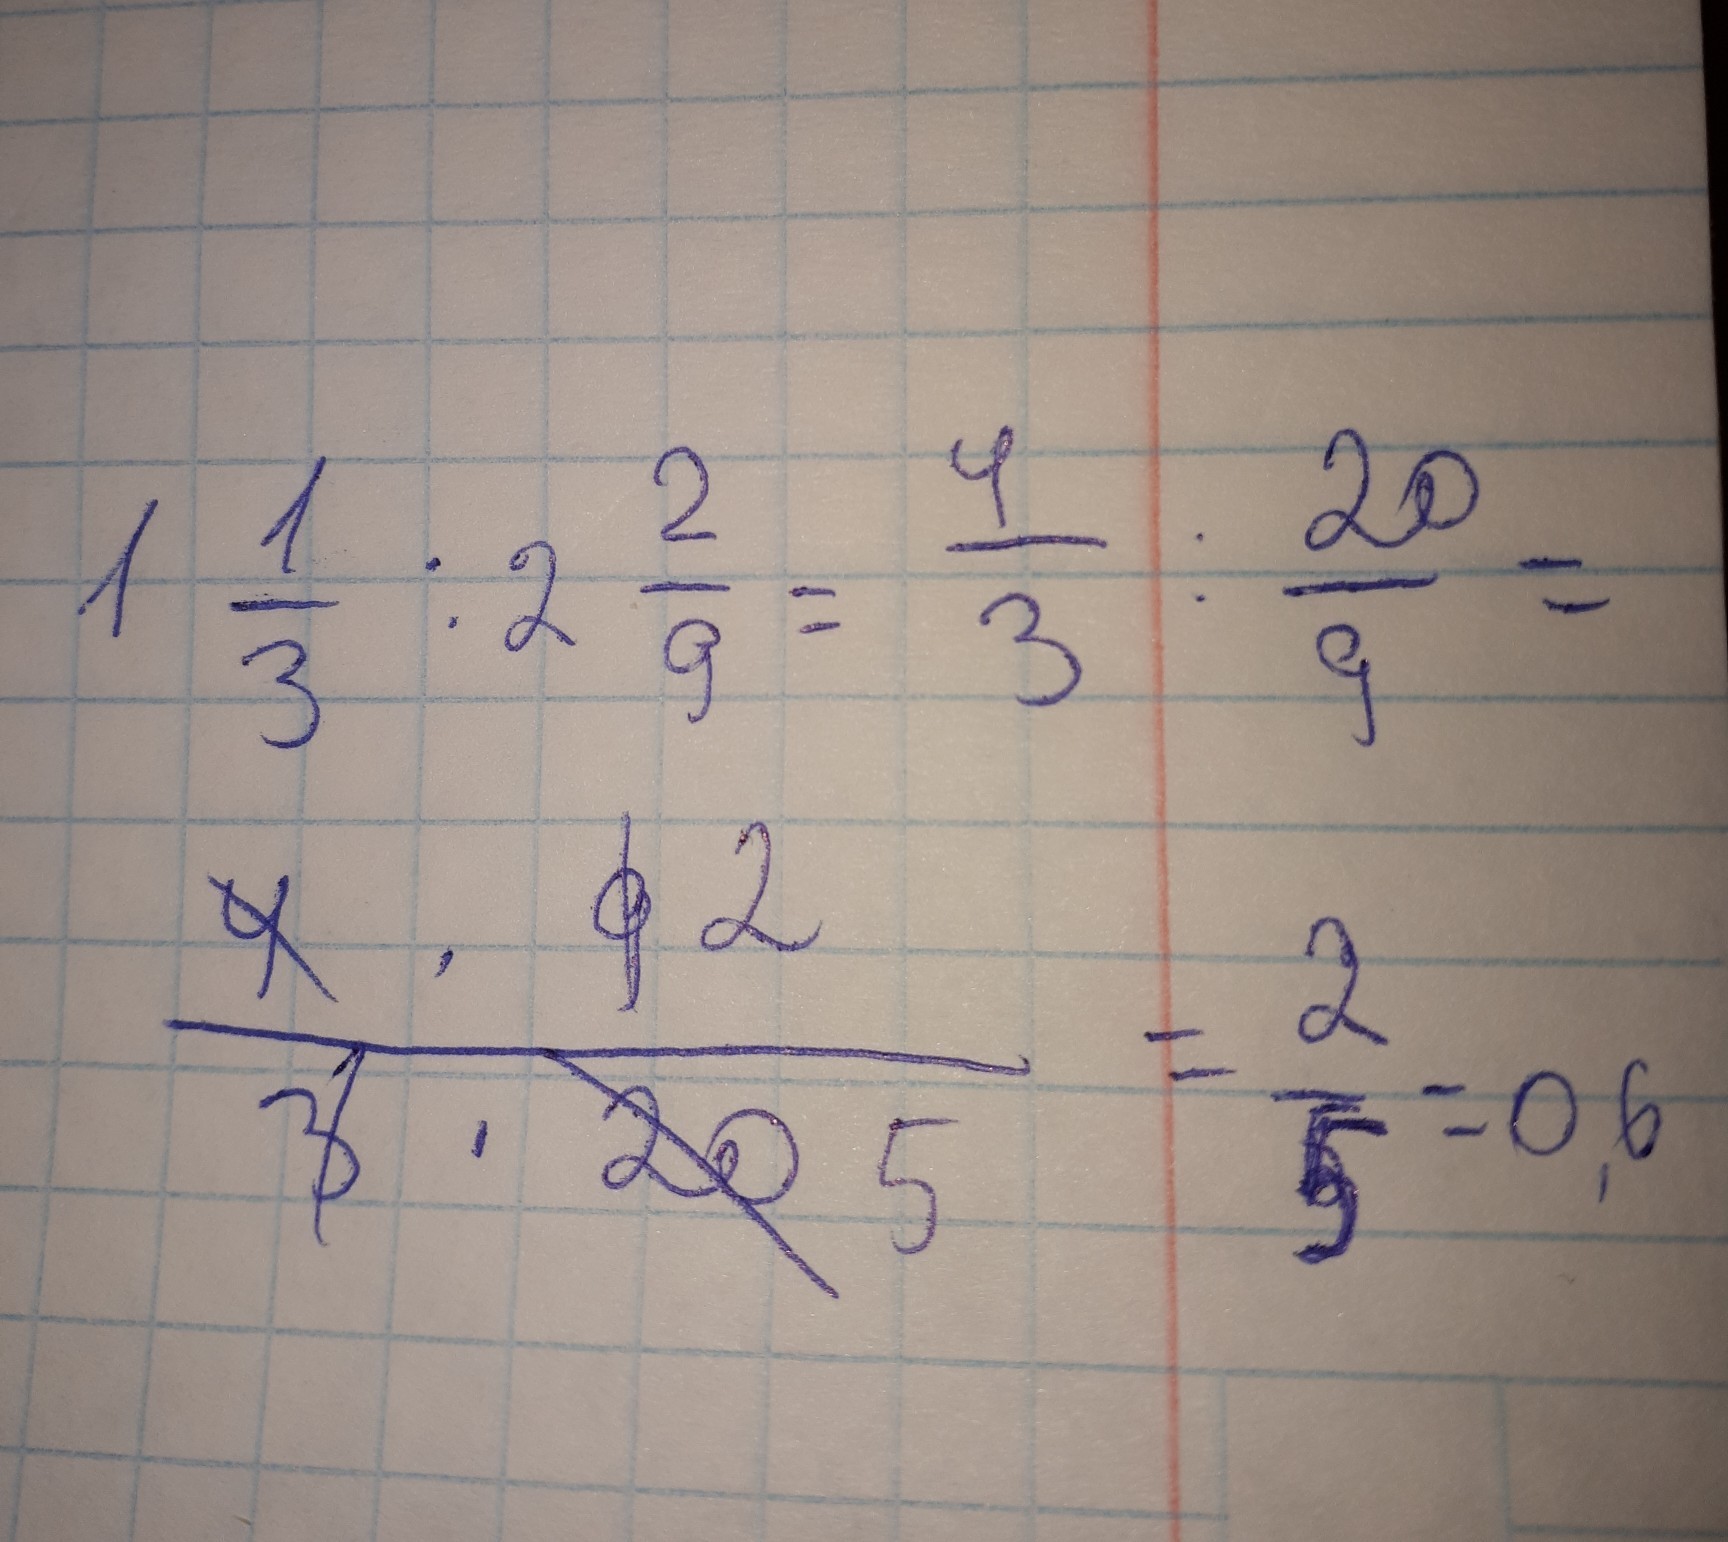 1 1/3 : 2 2/9 = 4/3 : 20/9 =
4 · 9 2 / 3 · 20 5 = 2/5 = 0,6